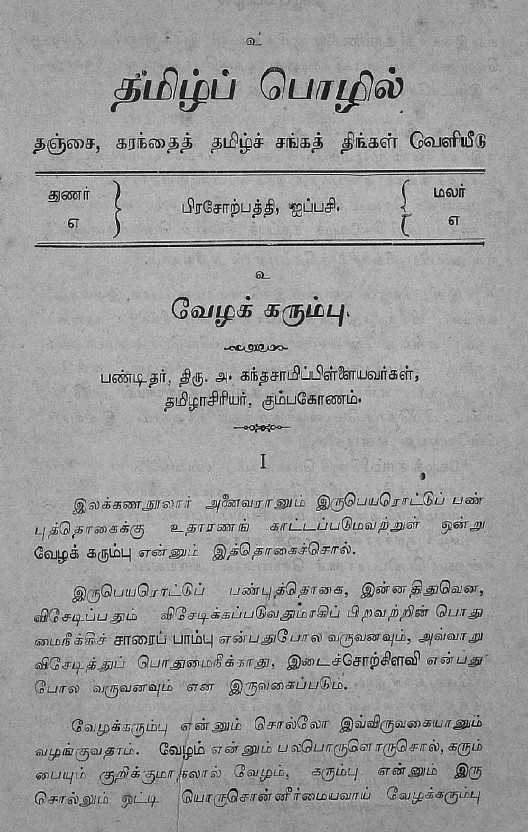 உ
தமிழ்ப் பொழில்
தஞ்சை, கரந்தைத் தமிழ்ச் சங்கத் திங்கள் வெளியீடு
துணர்
எ
பிரசோற்பத்தி, ஐப்பசி.
மலர்
எ
உ
வேழக் கரும்பு.
பண்டிதர், திரு. அ. கந்தசாமிப்பிள்ளையவர்கள்,
தமிழாசிரியர், கும்பகோணம்.
I
இலக்கணநூலார் அனைவரானும் இருபெயரொட்டுப் பண்
புத்தொகைக்கு உதாரணங் காட்டப்படுமவற்றுள் ஒன்று
வேழக் கரும்பு என்னும் இத்தொகைச்சொல்.
இருபெயரொட்டுப் பண்புத்தொகை, இன்னதிதுவென,
விசேடிப்பதும் விசேடிக்கப்படுவதுமாகிப் பிறவற்றின் பொது
மைநீக்கிச் சாரைப் பாம்பு என்பதுபோல வருவனவும், அவ்வாறு
விசேடித்துப் பொதுமைநீக்காது, இடைச்சொற்கிளவி என்பது
போல வருவனவும் என இருவகைப்படும்.
வேழக்கரும்பு என்னும் சொல்லோ இவ்விருவகையானும்
வழங்குவதாம். வேழம் என்னும் பலபொருளொருசொல், கரும்
பையும் குறிக்குமாதலால் வேழம், கரும்பு என்னும் இரு
சொல்லும் ஒட்டி யொருசொன்னீர்மையவாய் வேழக்கரும்பு